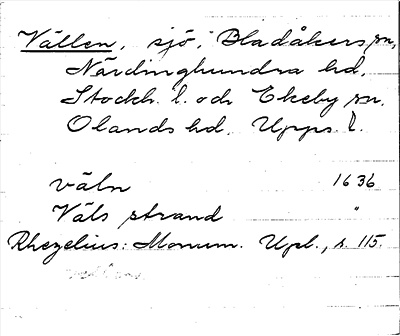 Vällen, sjö, Bladåkers sn,
Närdinghundra hd,
Stockh. l. och Ekeby sn.
Olands hd, Upps. l.
väln 1636
Väls strand "
Rhezelius: Monum. Upl., s. 115.